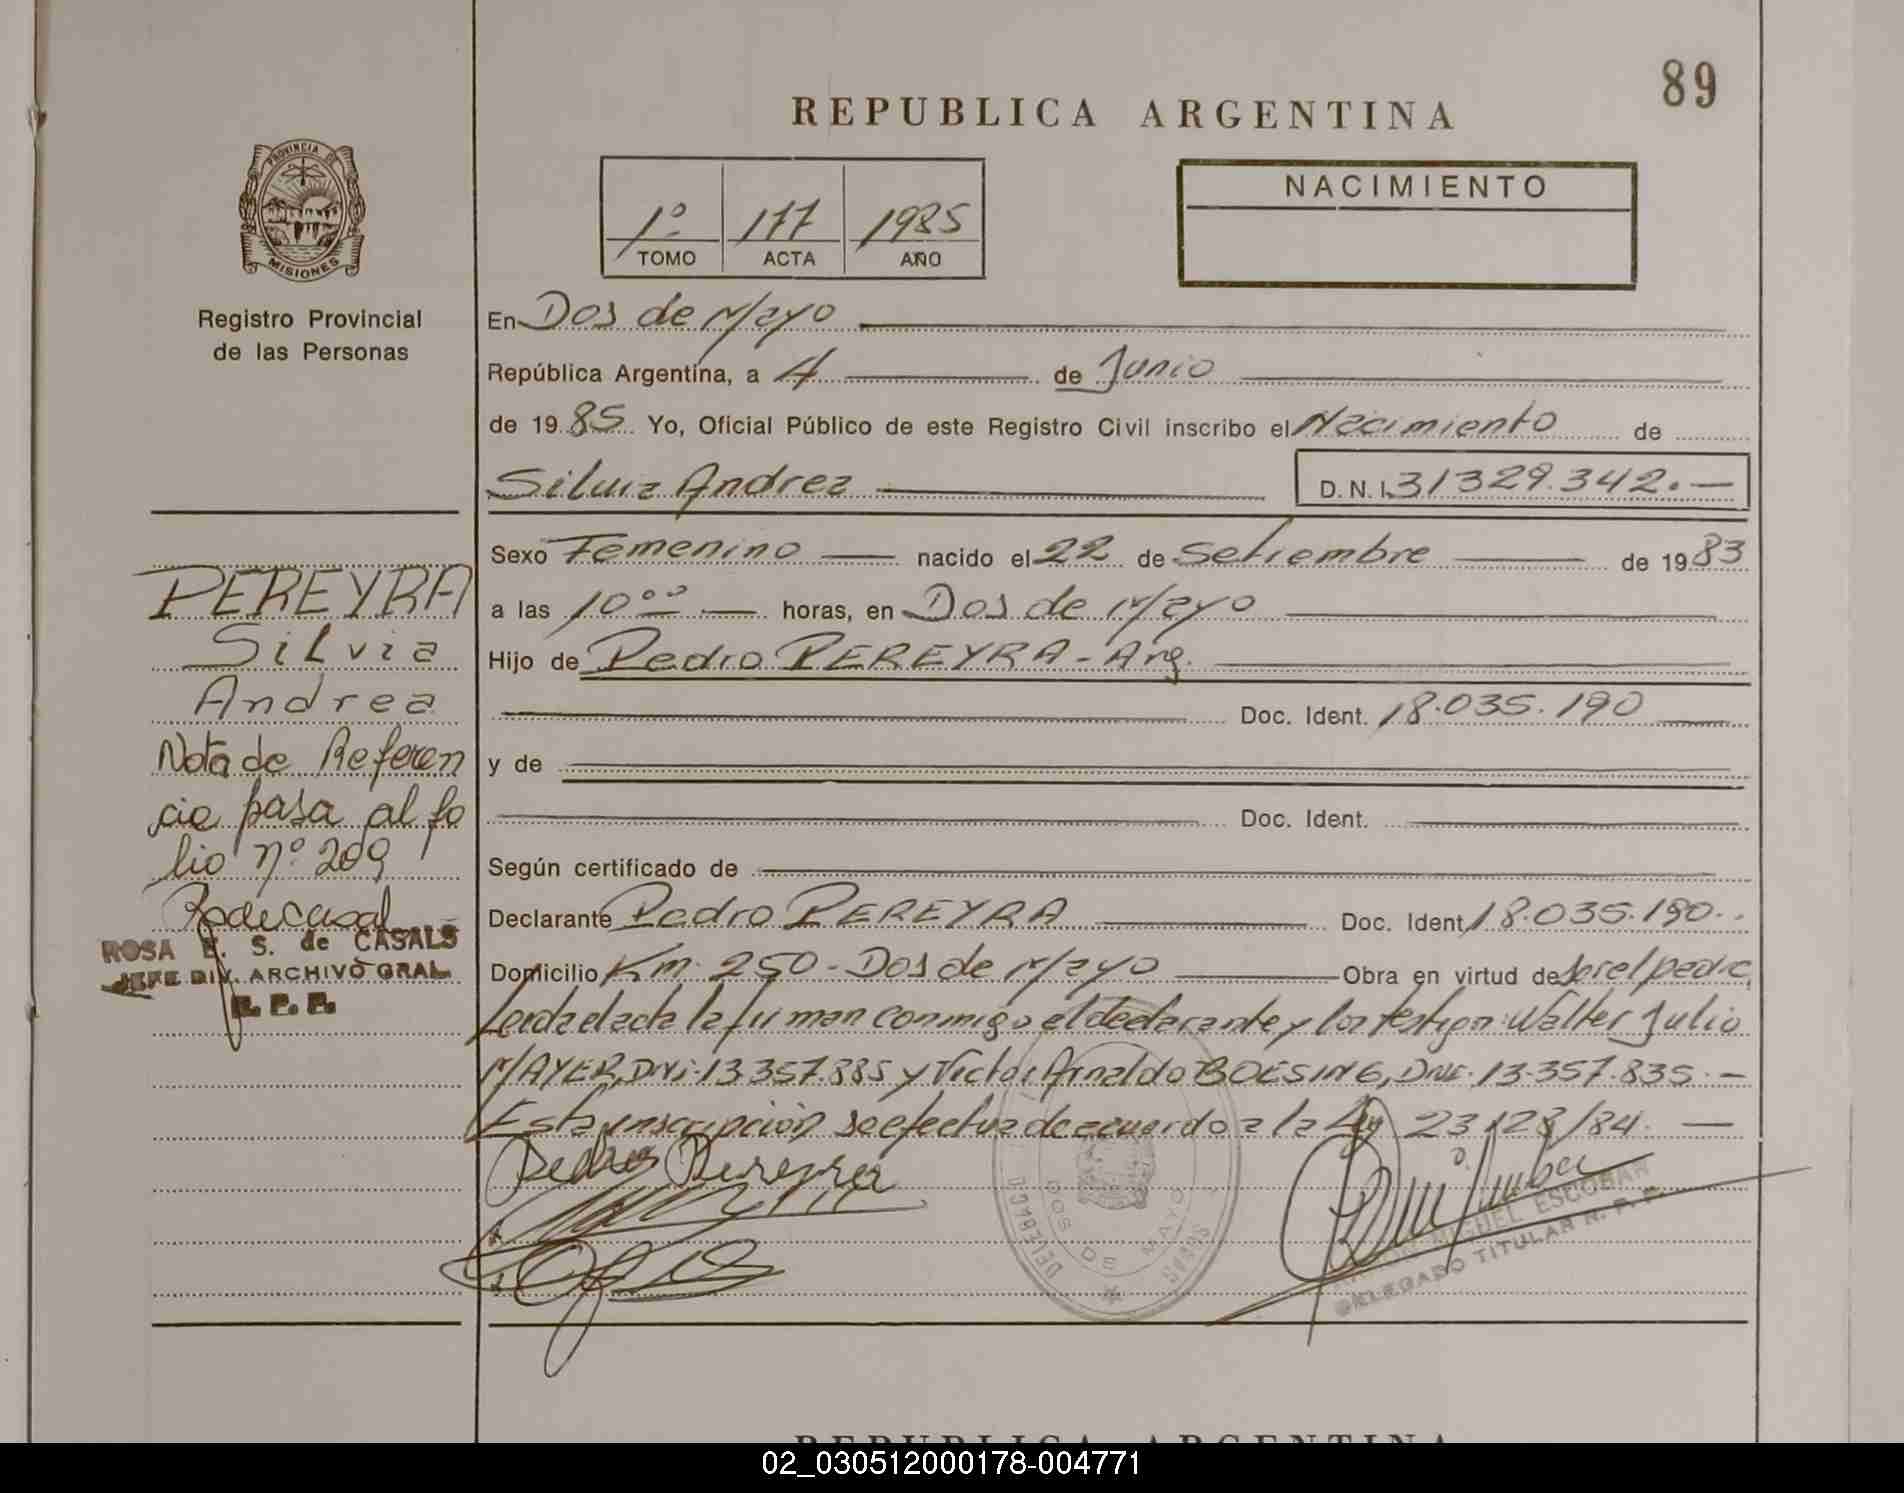 89
REPUBLICA ARGENTINA
PROVINCIA DE
MISIONES
Registro Provincial
de las Personas
1º 177 1985
TOMO ACTA AÑO
NACIMIENTO
En Dos de Mayo
República Argentina, a 4 de Junio
de 1985 Yo, Oficial Público de este Registro Civil inscribo el Nacimiento de
Silvia Andrea D.N.I. 31329.342.—
Sexo Femenino nacido el 22 de Setiembre de 1983
a las 10 ºº horas, en Dos de Mayo
Hijo de Pedro PEREYRA - Arg.
Doc. Ident. 18.035.190
y de
Doc. Ident.
Según certificado de
Declarante Pedro PEREYRA Doc. Ident. 18.035.190..
Domicilio Km. 250 - Dos de Mayo Obra en virtud de ser el padre
Leida el acta la firman conmigo el declarante y los testigos: Walter Julio
MAYER, DNI. 13.357.885 y Victor Arnaldo BOESING, DNI. 13.357.835.—
Esta inscripción se efectua de acuerdo a la Ley 23.128/84.—
Pedro Pereyra
DOS DE MAYO
MIGUEL ESCOBAR
DELEGADO TITULAR R. P. P.
PEREYRA
Silvia
Andrea
Nota de Referen
cia pasa al fo
lio nº 209
ROSA E. S. de CASALS
JEFE DIV. ARCHIVO GRAL.
R. P. P.
REPUBLICA ARGENTINA
02_030512000178-004771